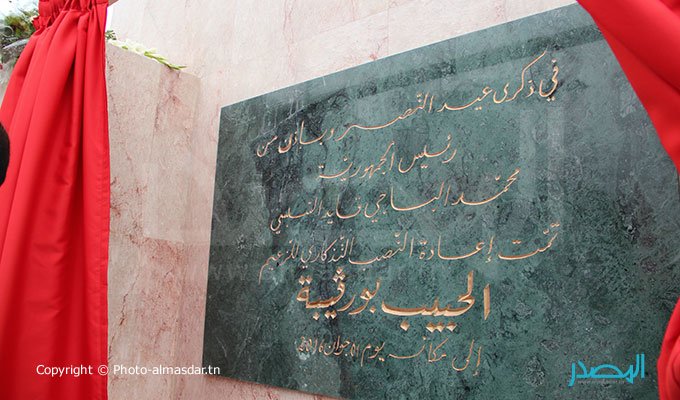 في ذكرى عيد النّصر وبإذن من
رئيس الجمهوريّة
محمّد الباجي قايد السّبسي
تمّت إعادة النّصب التّذكاري للزعيم
الحبيب بورڨيبة
إلى مكانه يوم 01 جوان 2016
المصدر
Copyright © Photo-almasdar.tn